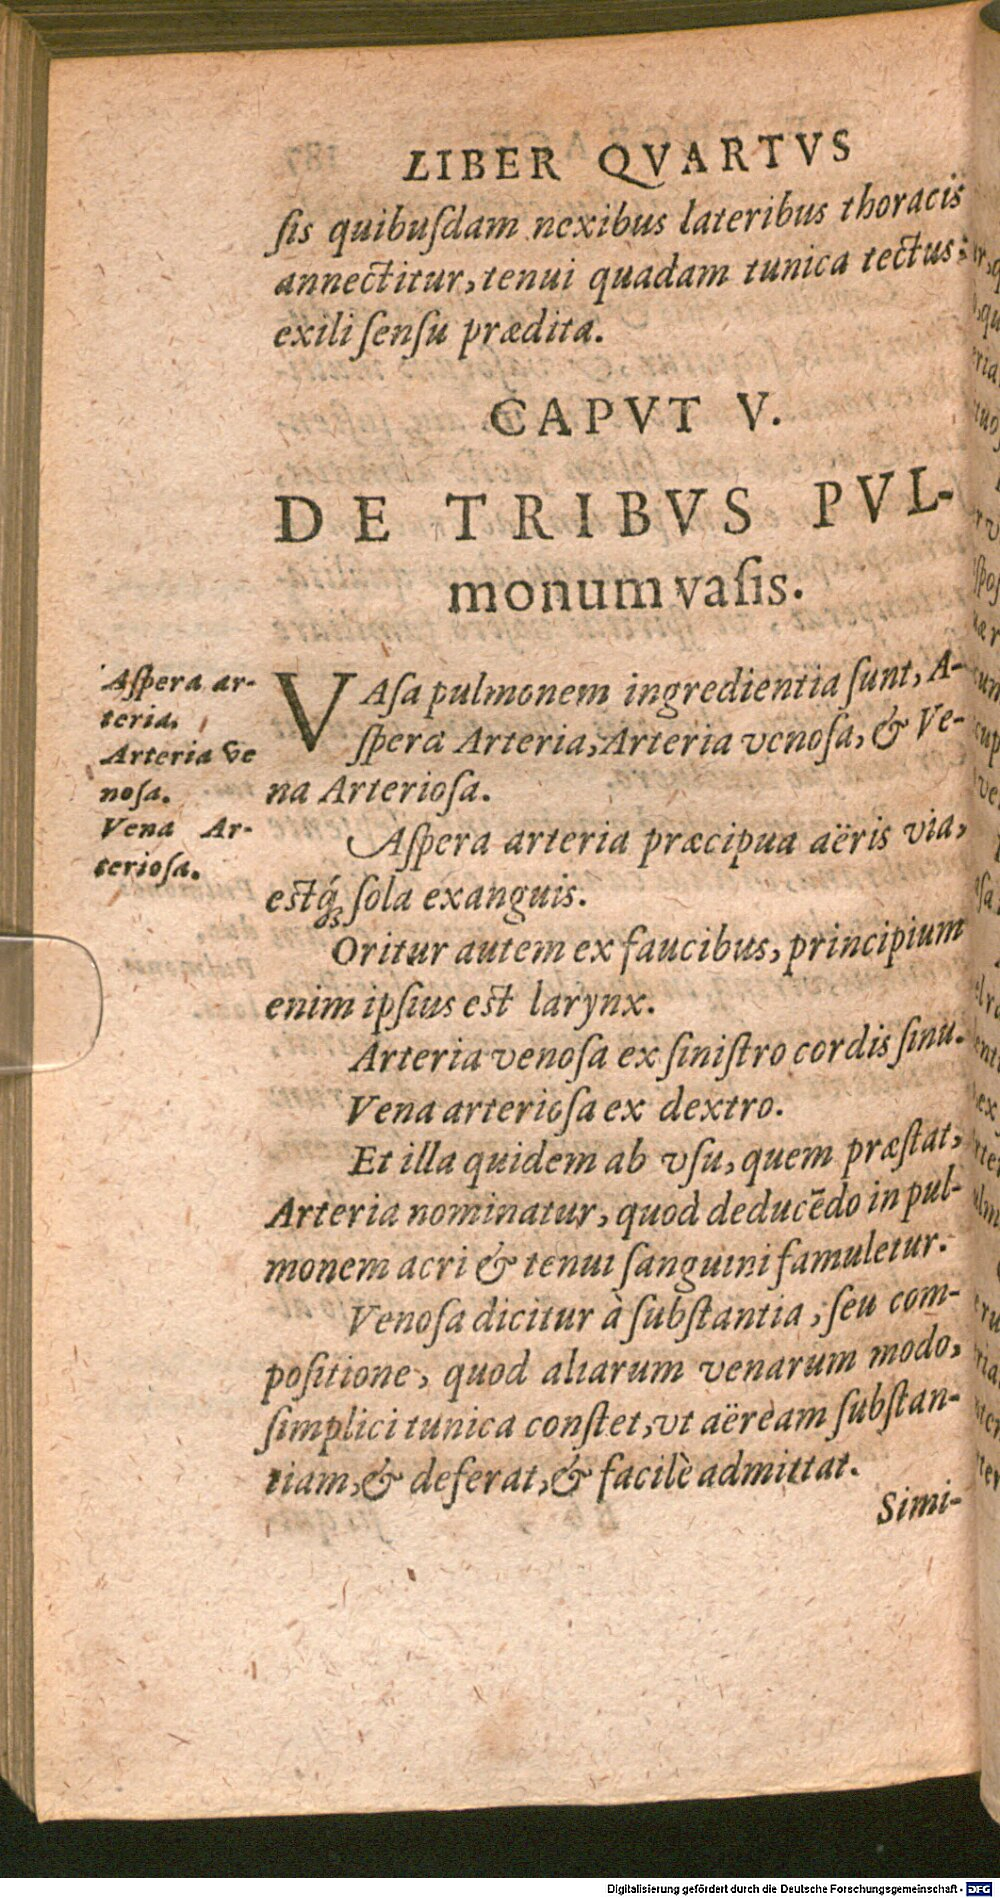 LIBER QVARTVS
ſis quibuſdam nexibus lateribus thoracis
annectitur, tenui quadam tunica tectus:
exili ſenſu prædita.
CAPVT V.
DE TRIBVS PVL-
monum vaſis.
Aſpera ar-
teria.
Arteria Ve
noſa.
Vena Ar-
terioſa.
VAſa pulmonem ingredientia ſunt, A-
ſpera Arteria, Arteria venoſa, & Ve-
na Arterioſa.
Aſpera arteria præcipua aëris via,
estq́; ſola exanguis.
Oritur autem ex faucibus, principium
enim ipſius est larynx.
Arteria venoſa ex ſiniſtro cordis ſinu.
Vena arterioſa ex dextro.
Et illa quidem ab vſu, quem præſtat,
Arteria nominatur, quod deducẽdo in pul-
monem acri & tenui ſanguini famuletur.
Venoſa dicitur à ſubſtantia, ſeu com-
poſitione, quod aliarum venarum modo,
ſimplici tunica conſtet, vt aëream ſubſtan-
tiam, & deferat, & facilè admittat.
Simi-
Digitalisierung gefördert durch die Deutsche Forschungsgemeinschaft - DFG